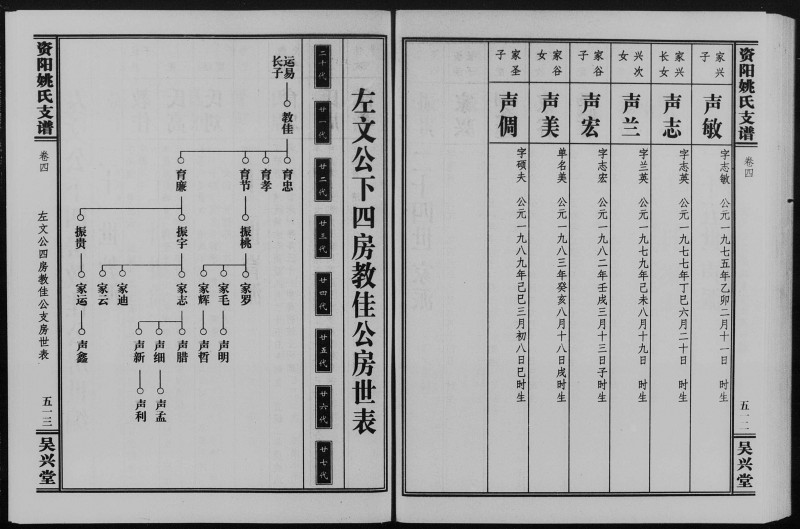 资阳姚氏支谱
卷四
五一二
吴兴堂
家兴
子
声敏
字志敏 公元一九七五年乙卯二月十一日 时生
家兴
长女
声志
字志英 公元一九七七年丁巳六月二十日 时生
兴次
女
声兰
字兰英 公元一九七九年己未八月十九日 时生
家谷
子
声宏
字志宏 公元一九八二年壬戌三月十三日子时生
家谷
女
声美
单名美 公元一九八三年癸亥八月十八日戌时生
家圣
子
声倜
字硕夫 公元一九八九年己巳三月初八日巳时生
左文公下四房教佳公房世表
二十代
廿一代
廿二代
廿三代
廿四代
廿五代
廿六代
廿七代
运易
长子
教佳
育忠
育孝
育节
育廉
振桃
振宇
振贵
家罗
家毛
家辉
家志
家迪
家云
家运
声明
声哲
声腊
声细
声新
声鑫
声孟
声利
资阳姚氏支谱
卷四
左文公四房教佳公支房世表
五一三
吴兴堂